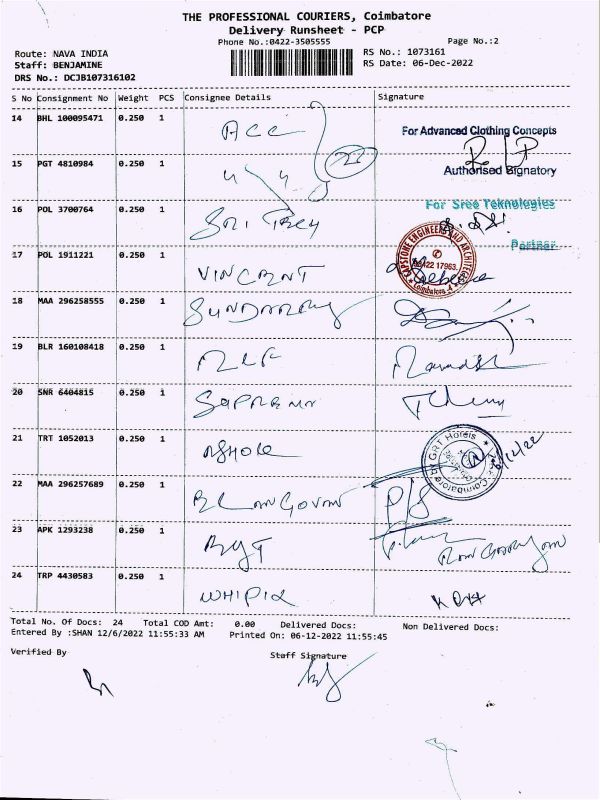 THE PROFESSIONAL COURIERS, Coimbatore
Delivery Runsheet - PCP
Phone No.:0422-3505555
Page No.:2
Route: NAVA INDIA
RS No.: 1073161
Staff: BENJAMINE
RS Date: 06-Dec-2022
DRS No.: DCJB107316102
S No Consignment No Weight PCS Consignee Details Signature
14 BHL 100095471 0.250 1 ACC
For Advanced Clothing Concepts
Authorised Signatory
15 PGT 4810984 0.250 1
16 POL 3700764 0.250 1 SRI
For Sree Teknologies
Partner
17 POL 1911221 0.250 1 VINCENT
CAPSTONE ENGINEERS AND ARCHITECTS
Coimbatore
18 MAA 296258555 0.250 1
19 BLR 160108418 0.250 1
20 SNR 6404815 0.250 1
21 TRT 1052013 0.250 1 ASHOK
GRT Hotels
Coimbatore
22 MAA 296257689 0.250 1
23 APK 1293238 0.250 1
24 TRP 4430583 0.250 1
Total No. Of Docs: 24 Total COD Amt: 0.00 Delivered Docs: Non Delivered Docs:
Entered By :SHAN 12/6/2022 11:55:33 AM Printed On: 06-12-2022 11:55:45
Verified By
Staff Signature